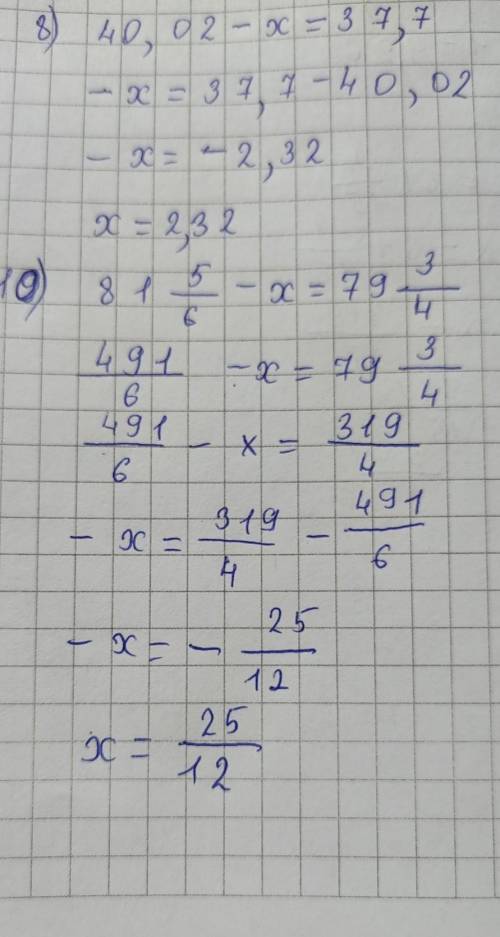 8) 40,02 - x = 37,7
- x = 37,7 - 40,02
- x = - 2,32
x = 2,32
10) 81 5/6 - x = 79 3/4
491/6 - x = 79 3/4
491/6 - x = 319/4
- x = 319/4 - 491/6
- x = - 25/12
x = 25/12